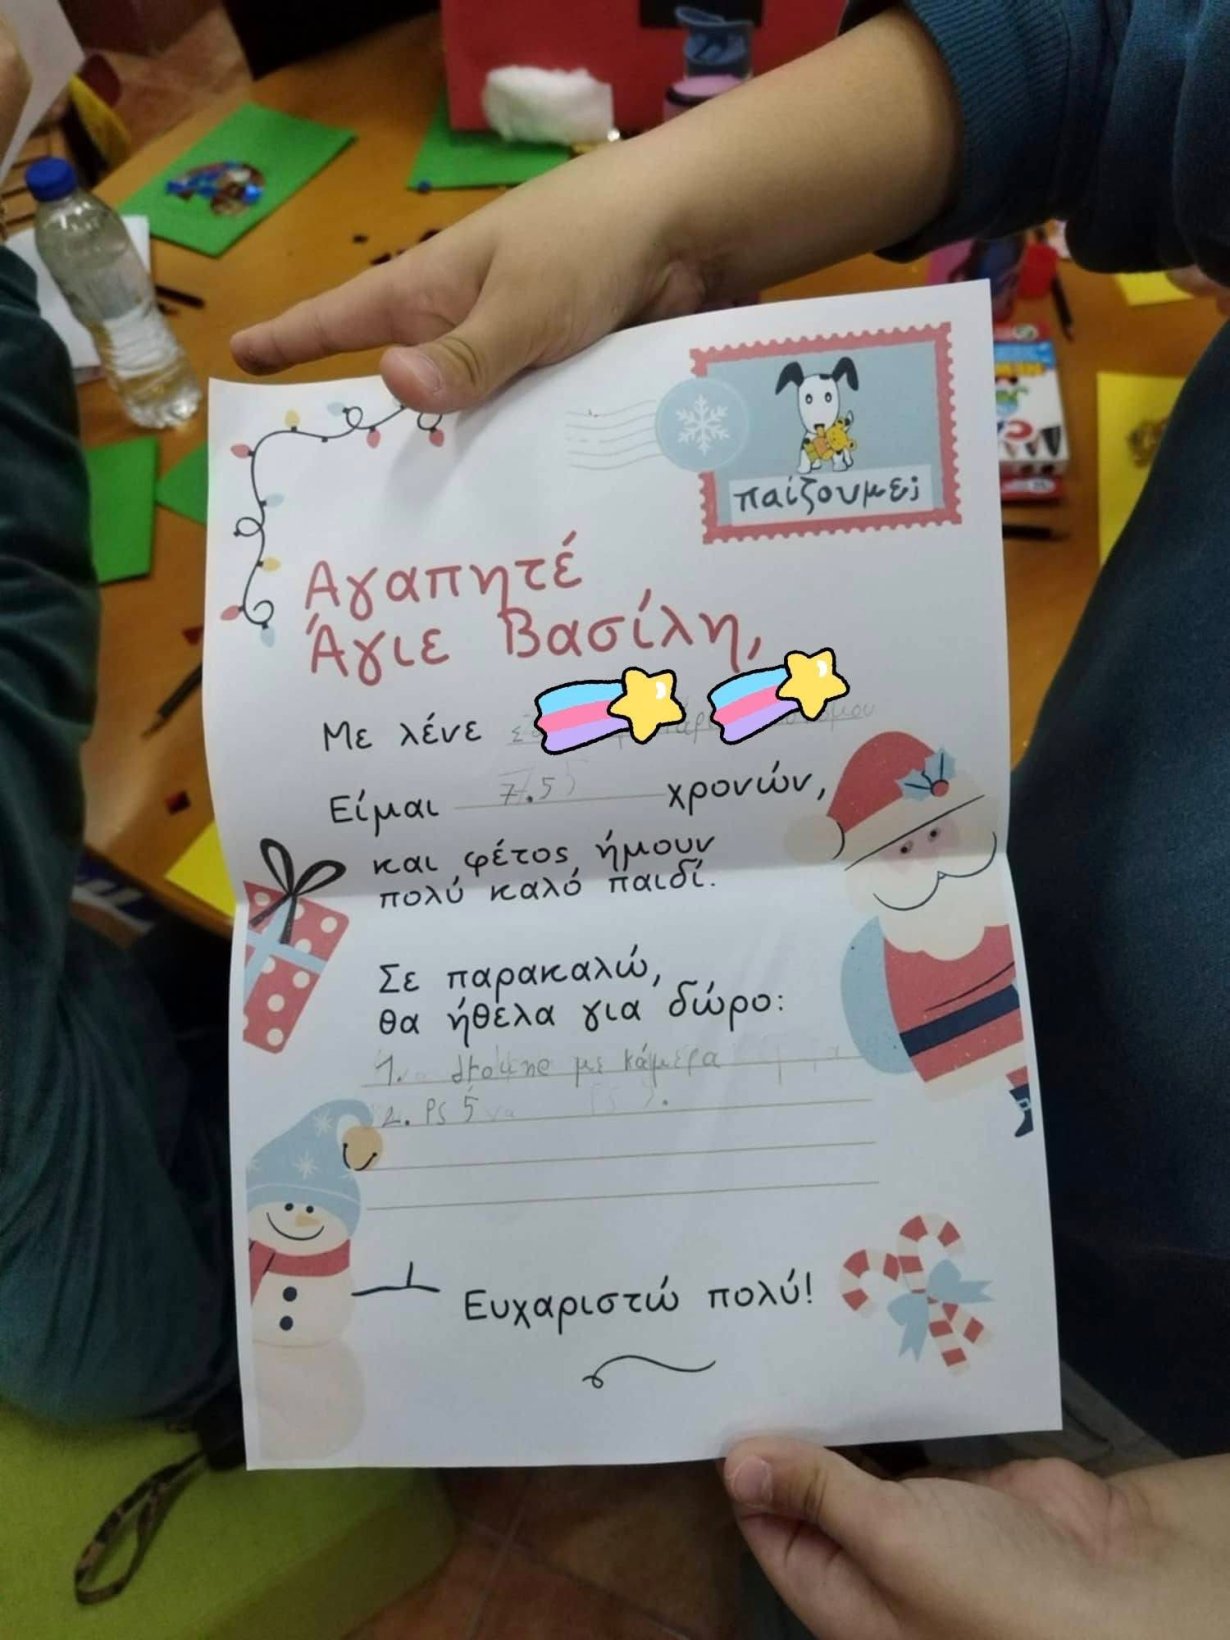 παίζουμε;
Αγαπητέ
Άγιε Βασίλη,
Με λένε
Είμαι 7.5 χρονών,
και φέτος ήμουν
πολύ καλό παιδί.
Σε παρακαλώ,
θα ήθελα για δώρο:
1. drowne με κάμερα
2. PS 5
Ευχαριστώ πολύ!